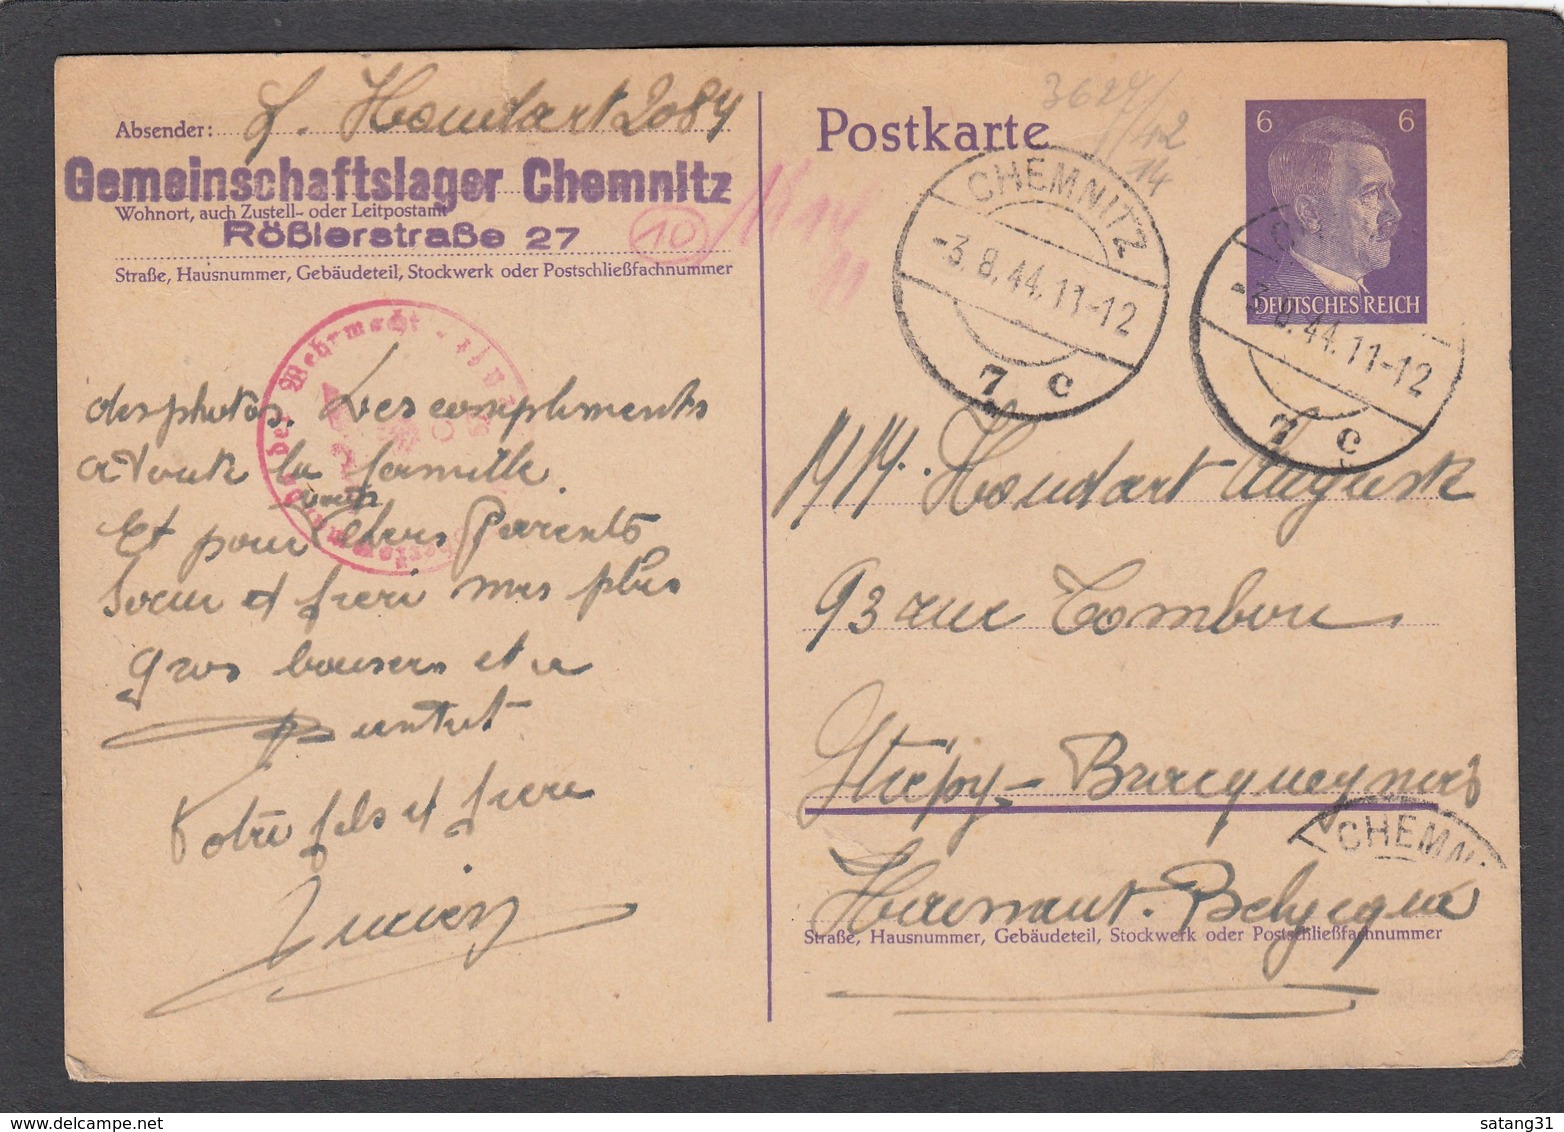 Absender: L. Houdart 2084
Gemeinschaftslager Chemnitz
Wohnort, auch Zustell- oder Leitpostamt
Rößlerstraße 27
10
Straße, Hausnummer, Gebäudeteil, Stockwerk oder Postschließfachnummer
der Wehrmacht
des photos. Les compliments
a toute la famille
Et pour vous chers Parents
Soeur et frere mes plus
gros bousers et a
bientot
Votre fils et frere
Lucien
Postkarte
3627/
42
14
6 6
DEUTSCHES REICH
CHEMNITZ
-3.8.44.11-12
7 c
C
-3.8.44.11-12
7 c
M.M. Houdart Auguste
93 rue Tombou
Strepy-Bracquegnies
CHEMNI
Hainaut. Belgique
Straße, Hausnummer, Gebäudeteil, Stockwerk oder Postschließfachnummer
satang31